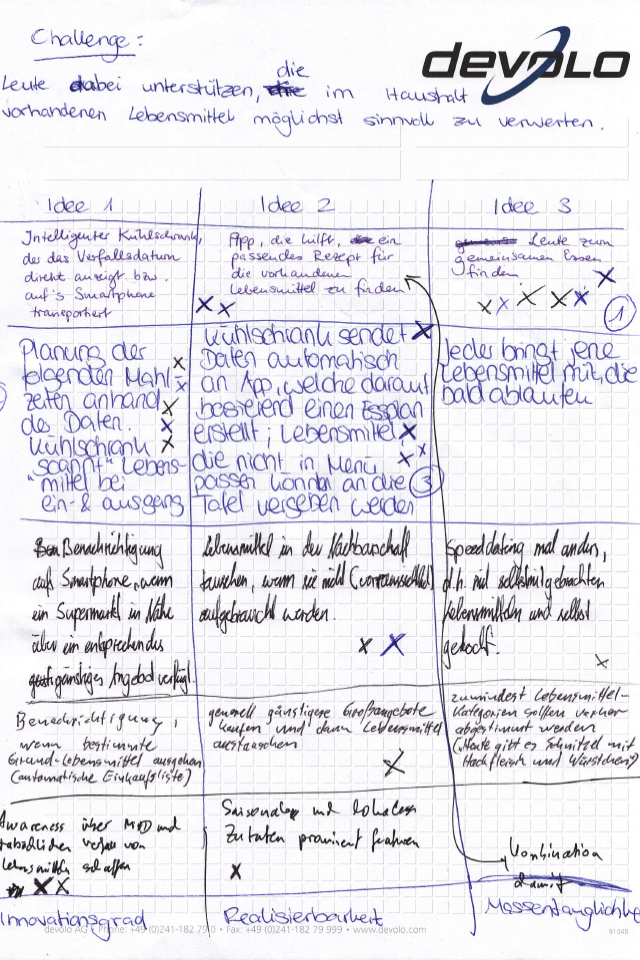 Challenge:
devolo
Leute dabei unterstützen, die im Haushalt
vorhandenen Lebensmittel möglichst sinnvoll zu verwerten.
Idee 1
Idee 2
Idee 3
Intelligenter Kühlschrank,
der das Verfallsdatum
direkt anzeigt bzw.
auf's Smartphone
transportiert
App, die hilft, ein
passendes Rezept für
die vorhandenen
Lebensmittel zu finden
Leute zum
gemeinsamen Essen
finden
1
Planung der
folgenden Mahl-
zeiten anhand
der Daten.
Kühlschrank
"scannt" Lebens-
mittel bei
ein- & ausgang
Kühlschrank sendet
Daten automatisch
an App, welche darauf
basierend einen Essplan
erstellt; Lebensmittel
die nicht in Menü
passen können an die
Tafel vergeben werden
3
Jeder bringt jene
Lebensmittel mit, die
bald ablaufen
Benachrichtigung
aufs Smartphone, wenn
ein Supermarkt in Nähe
über ein entsprechendes
günstiges Angebot verfügt.
Lebensmittel in der Nachbarschaft
tauschen, wenn sie nicht (voraussichtlich)
aufgebraucht werden.
Speeddating mal anders,
d.h. mit selbstmitgebrachten
Lebensmitteln und selbst
gekocht.
Benachrichtigung,
wenn bestimmte
Grund-Lebensmittel ausgehen
(automatische Einkaufsliste)
generell günstigere Großangebote
kaufen und dann Lebensmittel
austauschen
zumindest Lebensmittel-
Kategorien sollten vorher
abgestimmt werden
(Heute gibt es Schnitzel mit
Hackfleisch und Würstchen)
Awareness über MHD und
von
Lebensmitteln schaffen
Saisonale und lokale
Zutaten prominent
Kombination
damit
Innovationsgrad
Realisierbarkeit
Massentauglichkeit
devolo AG • Phone: +49 (0)241-182 79 0 • Fax: +49 (0)241-182 79 999 • www.devolo.com
91048